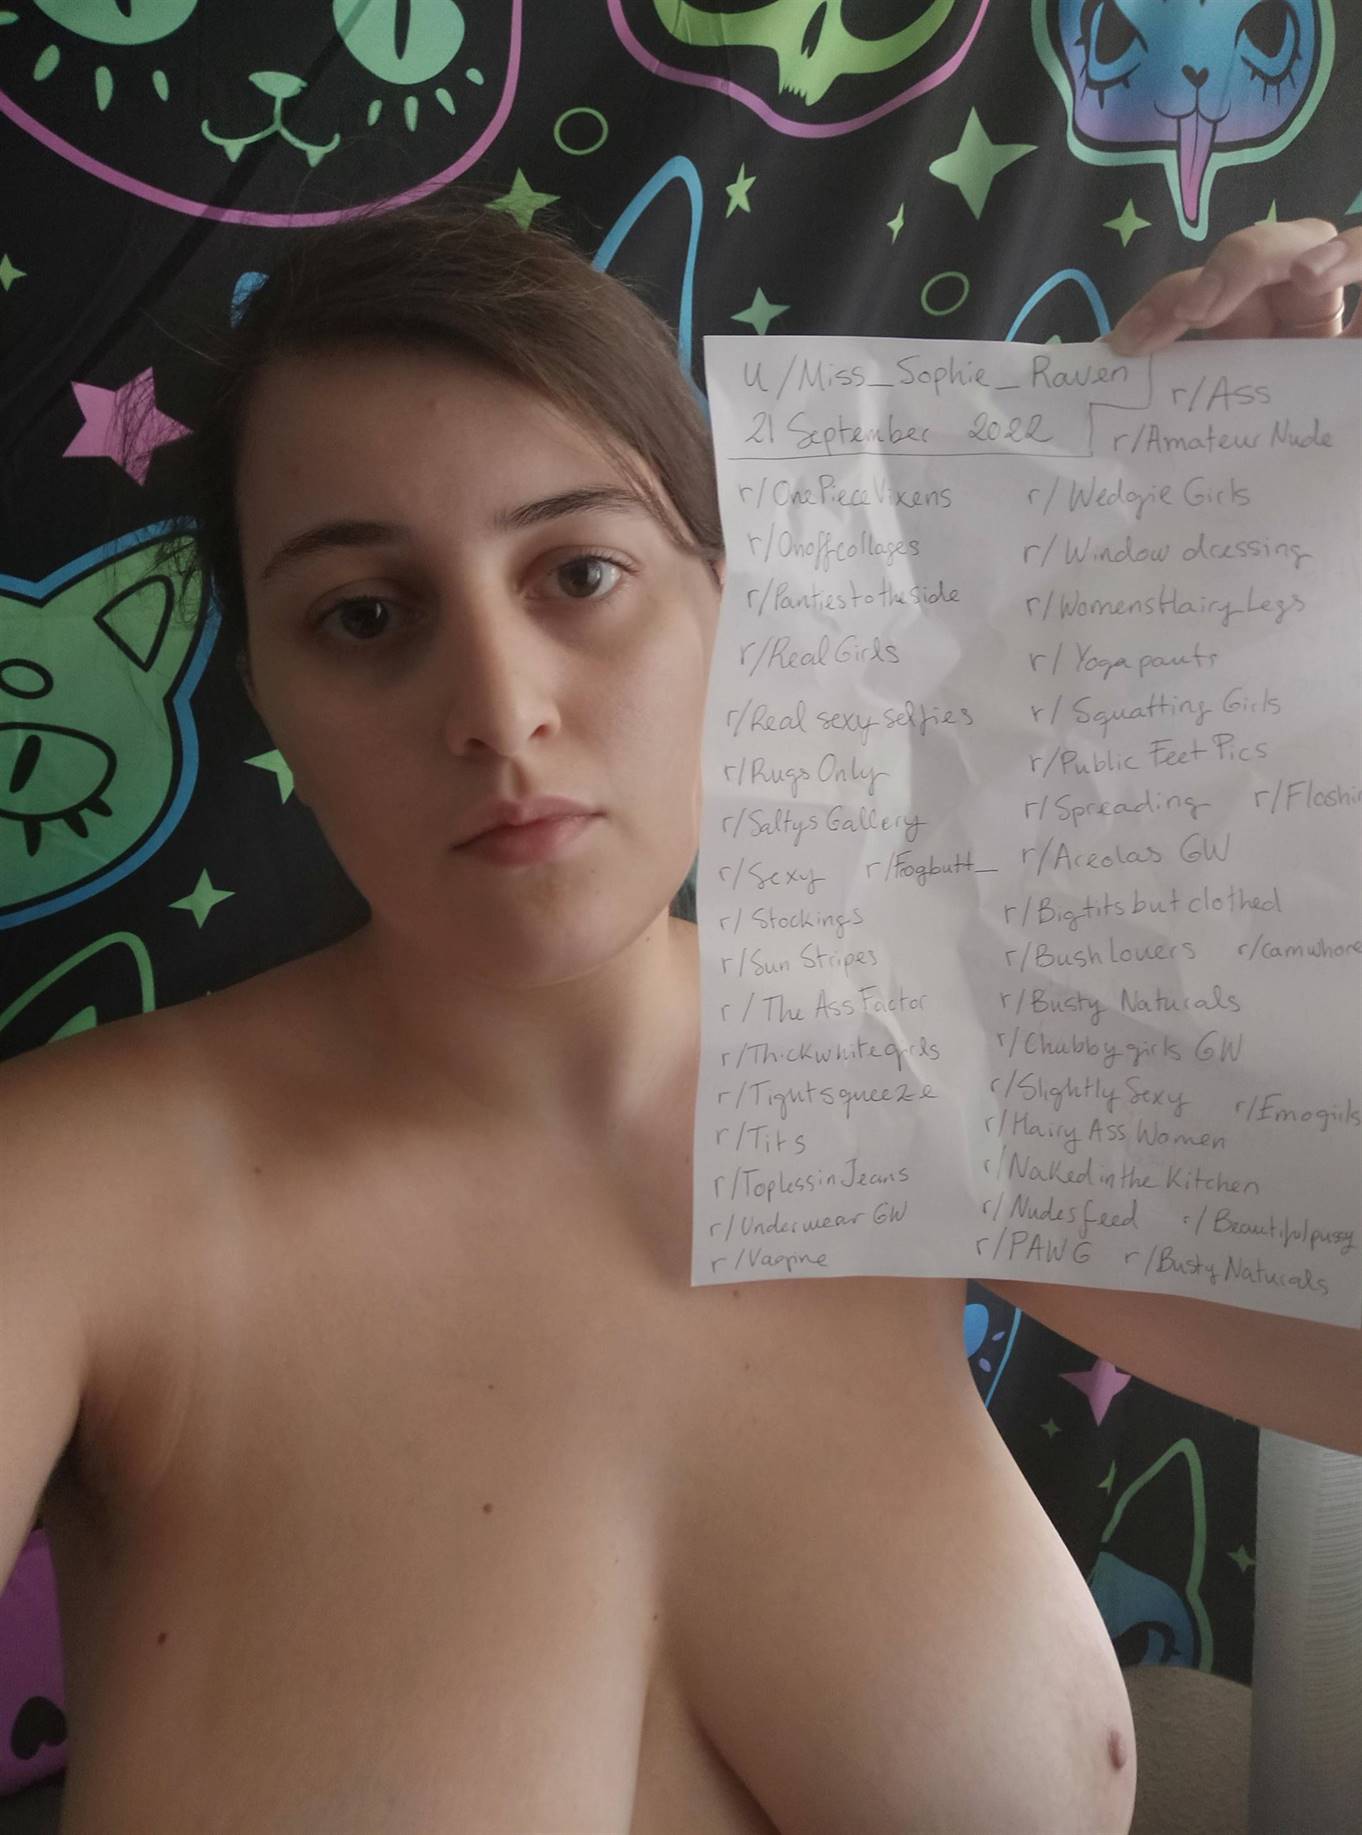 u/Miss_Sophie_Raven
21 September 2022
r/Ass
r/Amateur Nude
r/OnePieceVixens
r/Onoffcollages
r/Pantiestotheside
r/Real Girls
r/Real sexy selfies
r/Rugs Only
r/Saltys Gallery
r/Sexy r/Frogbutt_
r/Stockings
r/Sun Stripes
r/The Ass Factor
r/Thickwhitegirls
r/Tightsqueeze
r/Tits
r/ToplessinJeans
r/Underwear GW
r/Vagine
r/Wedgie Girls
r/Window dressing
r/WomensHairyLegs
r/Yoga pants
r/Squatting Girls
r/Public Feet Pics
r/Spreading r/Flashin
r/Areolas GW
r/Bigtits but clothed
r/Bush lovers r/camwhore
r/Busty Naturals
r/Chubby girls GW
r/Slightly Sexy r/Emogirls
r/Hairy Ass Women
r/Naked in the Kitchen
r/Nudes feed r/Beautifulpussy
r/PAWG r/Busty Naturals